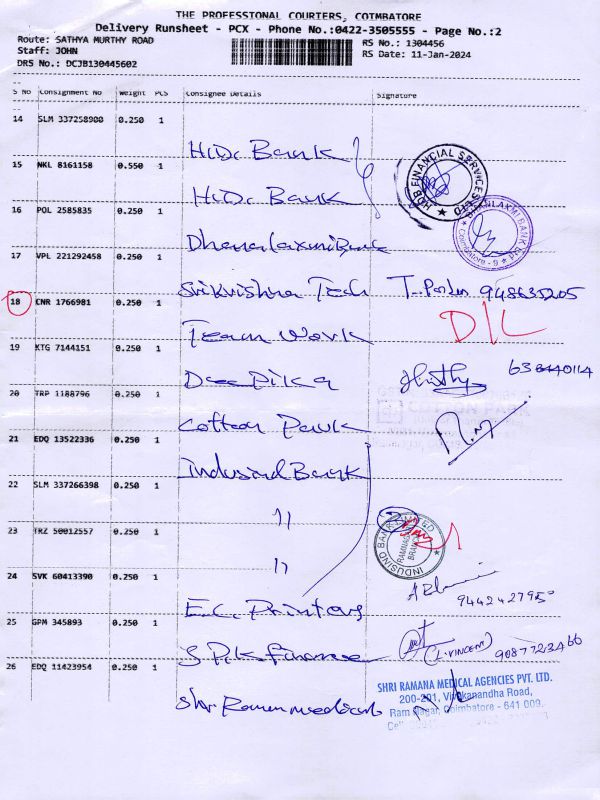 THE PROFESSIONAL COURIERS, COIMBATORE
Delivery Runsheet - PCX - Phone No.:0422-3505555 - Page No.:2
Route: SATHYA MURTHY ROAD
Staff: JOHN
DRS No.: DCJB130445602
RS No.: 1304456
RS Date: 11-Jan-2024
S No Consignment No Weight PCS Consignee Details Signature
14 SLM 337258900 0.250 1
HDB Bank
15 NKL 8161158 0.550 1
HDB Bank
HDB FINANCIAL SERVICES LTD
16 POL 2585835 0.250 1
Dhanalaxmi Bank
DHANLAXMI BANK
Coimbatore - 9
17 VPL 221292458 0.250 1
Srikrishna Tech
18 CNR 1766981 0.250 1
Team Work D/L
19 KTG 7144151 0.250 1
Deepika
20 TRP 1188796 0.250 1
Cotton Park
COTTON PARK
21 EDQ 13522336 0.250 1
Indusind Bank
22 SLM 337266398 0.250 1
11
INDUSIND BANK LIMITED
RAMNAGAR
BRANCH
23 TRZ 50012557 0.250 1
11
24 SVK 60413390 0.250 1
E.C. Printers
25 GPM 345893 0.250 1
S P.K finance (L.VINCENT)
26 EDQ 11423954 0.250 1
Shri Raman medical
SHRI RAMANA MEDICAL AGENCIES PVT. LTD.
200-201, Vivekanandha Road,
Ram Nagar, Coimbatore - 641 009.